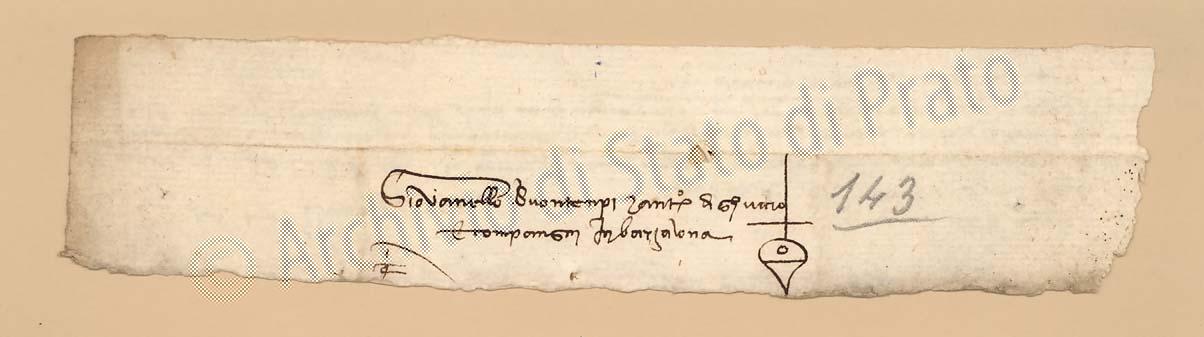 Giovanello Buontenpi Zanobi di Ghuccio
E conpangni In barzalona
143
© Archivio di Stato di Prato